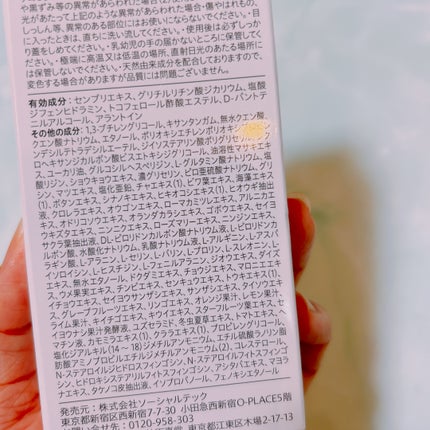 や黒ずみ等の異常があらわれた場合(2)使用した
光があたって上記のような異常があらわれた場合・傷やはれもの、
しっしん等、異常のある部位にはお使いにならないでください・目
に入ったときは、直ちに洗い流してください・使用後は必ずしっか
り蓋をしめてください・乳幼児の手の届かないところに保管してく
ださい・極端に高温又は低温の場所、直射日光のあたる場所に
は保管しないでください・天然由来成分を配合しておりますので、
変色する場合がありますが品質には問題ございません。
有効成分：センブリエキス、グリチルリチン酸ジカリウム、塩酸
ジフェンヒドラミン、トコフェロール酢酸エステル、D-パントテ
ニルアルコール、アラントイン
その他の成分：1,3-ブチレングリコール、キサンタンガム、無水クエン酸、
クエン酸ナトリウム、エタノール、ポリオキシエチレンポリオキシ
ンデシルテトラデシルエーテル、ジイソステアリン酸ポリグリセリル、
ロヘキサンジカルボン酸ビスエトキシジグリコール、油溶性マサキエキ
ス、ユーカリ油、グルコシル、ヘスペリジン、L-グルタミン酸ナトリウム、塩
酸リジン、ショウキョウエキス、濃グリセリン、ピロ亜硫酸ナトリウム、グリ
シン、マツエキス、塩化亜鉛、チャエキス(1)、ビワ葉エキス、海藻エキス
(1)、ボタンエキス、シナノキエキス、ヒキオコシエキス(1)、ヒオウギ抽出
液、クロレラエキス、オウゴンエキス、ローマカミツレエキス、アルニカエ
キス、オドリコソウエキス、オランダカラシエキス、ゴボウエキス、セイヨ
ウキズタエキス、ニンニクエキス、ローズマリーエキス、ニンジンエキス、
サクラ葉抽出液、DL-ピロリドンカルボン酸ナトリウム液、L-ピロリドンカ
ルボン酸、水酸化ナトリウム、乳酸ナトリウム液、L-アルギニン、L-アスパ
ラギン酸、L-アラニン、L-セリン、L-バリン、L-プロリン、L-スレオニン、L-
イソロイシン、L-ヒスチジン、L-フェニルアラニン、ジオウエキス、ダイズエ
キス、無水エタノール、ドクダミエキス、チョウジエキス、マロニエエキ
ス、ウメ果実エキス、チンピエキス、センキュウエキス、トウキエキス(1)、
チョウエキス、セイヨウサンザシエキス、サンザシエキス、タイソウエキ
ス、グレープフルーツエキス、リンゴエキス、オレンジ果汁、レモン果汁、
ライム果汁、キイチゴエキス、キウイエキス、スターフルーツ葉エキス、セ
イヨウナシ果汁発酵液、ユズセラミド、冬虫夏草エキス、トマトエキス、ヘ
チマン液(1)、カモミラエキス(1)、ケラミエキス(1)、プロピレングリコール、
塩化ジアルキル(14～18)ジメチルアンモニウム、エチル硫酸ラノリン脂
肪酸アミノプロピルエチルジメチルアンモニウム(2)、水素添加大豆レステロール、
N-ステアロイルジヒドロスフィンゴシン、N-ステアロイルフィトスフィンゴ
シン、ヒドロキシステアリルフィトスフィンゴシン、アシタバエキス、マヨラ
ナエキス、タケノコ皮抽出液、イソプロパノール、フェノキシエタノール
発売元：株式会社ソーシャルテック
東京都新宿区西新宿7-7-30 小田急西新宿O-PLACE5階
お問い合わせ:0120-958-303
江戸川区東小松川2-17-13